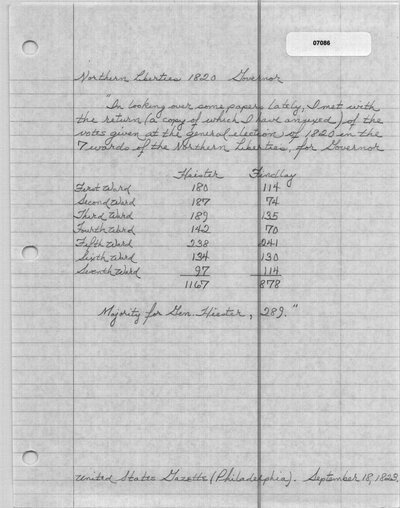 07086
Northern Liberties 1820 Governor
"In looking over some papers lately, I met with
the return (a copy of which I have annexed) of the
votes given at the general election of 1820 in the
7 wards of the Northern Liberties, for Governor
Hiester Findlay
First Ward 180 114
Second Ward 187 74
Third Ward 189 135
Fourth Ward 142 70
Fifth Ward 238 241
Sixth Ward 134 130
Seventh Ward 97 114
1167 878
Majority for Gen. Hiester, 289."
United States Gazette (Philadelphia). September 18, 1823.